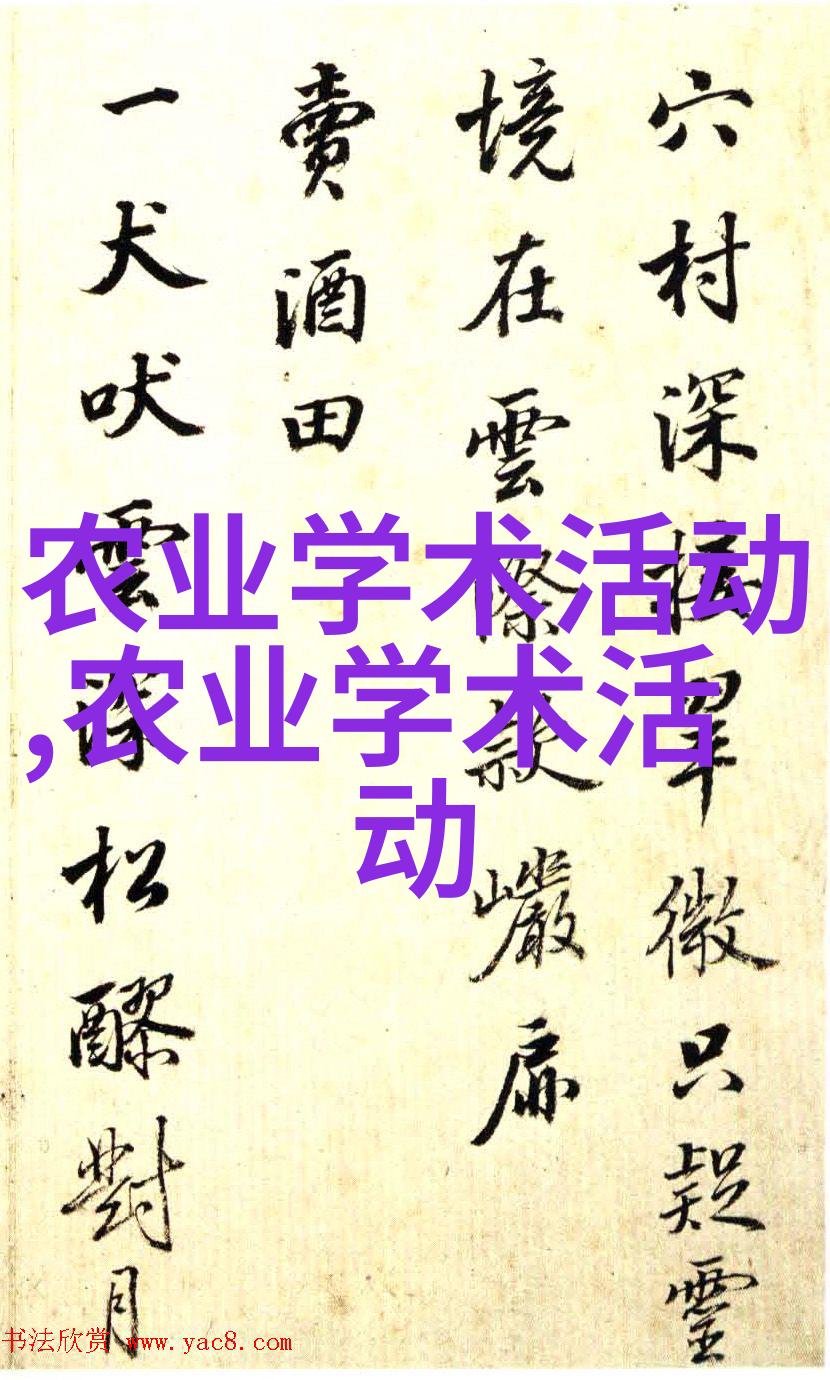 穴村深翠微只疑靈
境在雲際款巖扉
賣酒田
一犬吠雲深松醪對月
农业学术活动
,农业学术活
动
书法欣赏 www.yac8.com